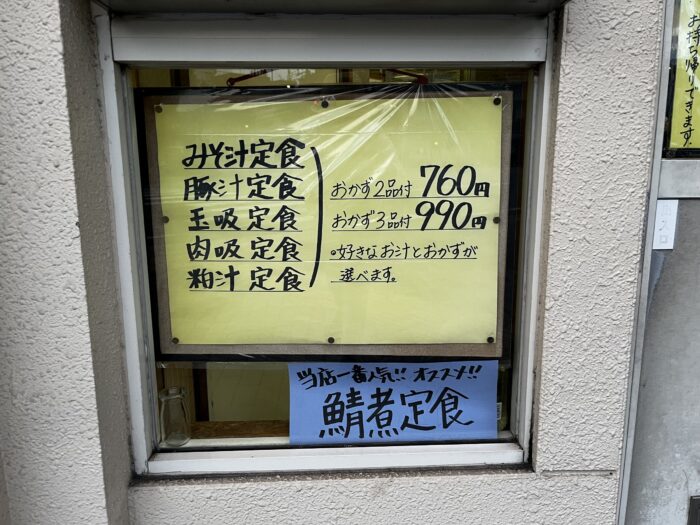 みそ汁定食
豚汁定食
玉吸定食
肉吸定食
粕汁定食
おかず2品付 760円
おかず3品付 990円
○好きなお汁とおかずが
選べます。
当店一番人気!! オススメ!!
鯖煮定食
お持ち帰りできます。